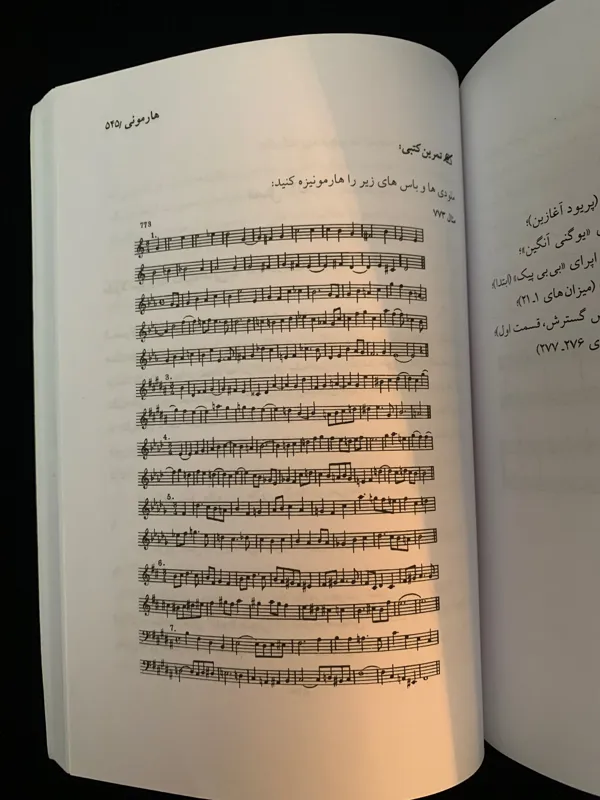 هارمونی /۵۴۵
تمرین کتبی:
ملودی ها و باس های زیر را هارمونیزه کنید:
مثال ۷۷۳
773
1.
3.
4.
5.
6.
7.
(پریود آغازین)؛
«یوگنی آنگین»؛
اپرای «بی‌بی پیک» (ابتدا)؛
(میزان‌های ۱ـ ۲۱)؛
گسترش، قسمت اول)؛
۲۷۶ـ ۲۷۷)